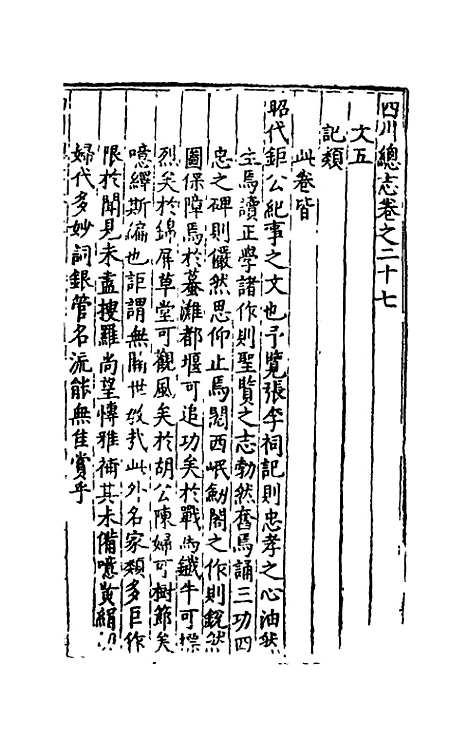 四川總志卷之二十七
文五
記類
此卷皆
昭代鉅公紀事之文也予覽張李祠記則忠孝之心油然
生焉讀正學諸作則聖賢之志勃然奮焉誦三功四
忠之碑則儼然思仰止焉閱西岷劒閣之作則銳然
圖保障焉於蕃灘都堰可追功矣於戰馬鐵牛可標
烈矣於錦屏草堂可觀風矣於胡公陳婦可樹節矣
噫繹斯編也詎謂無關世敎哉此外名家類多巨作
限於聞見未盡搜羅尚望愽雅補其未備噫黃絹幼
婦代多妙詞銀管名流能無隹賞乎